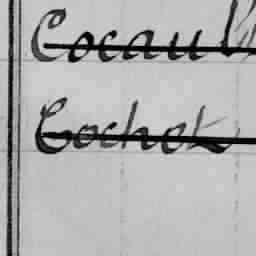 Cocaul
Cochet